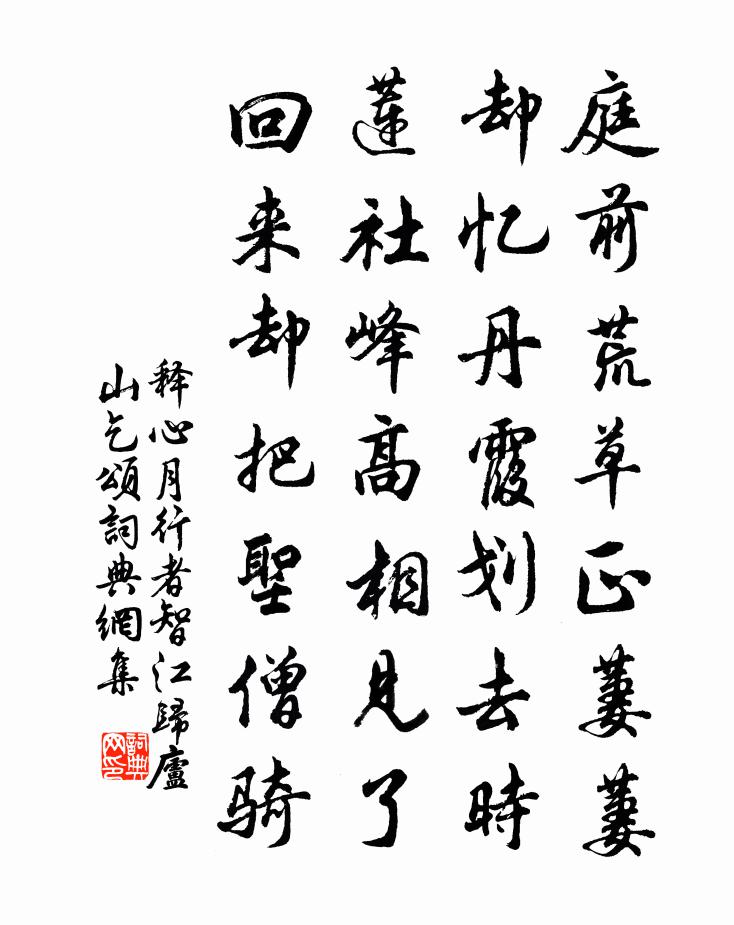 庭前荒草正萋萋
却忆丹霞划去時
蓮社峰高相見了
回来却把聖僧骑
释心月行者智江歸廬
山乞頌詞典網集
詞典
网印